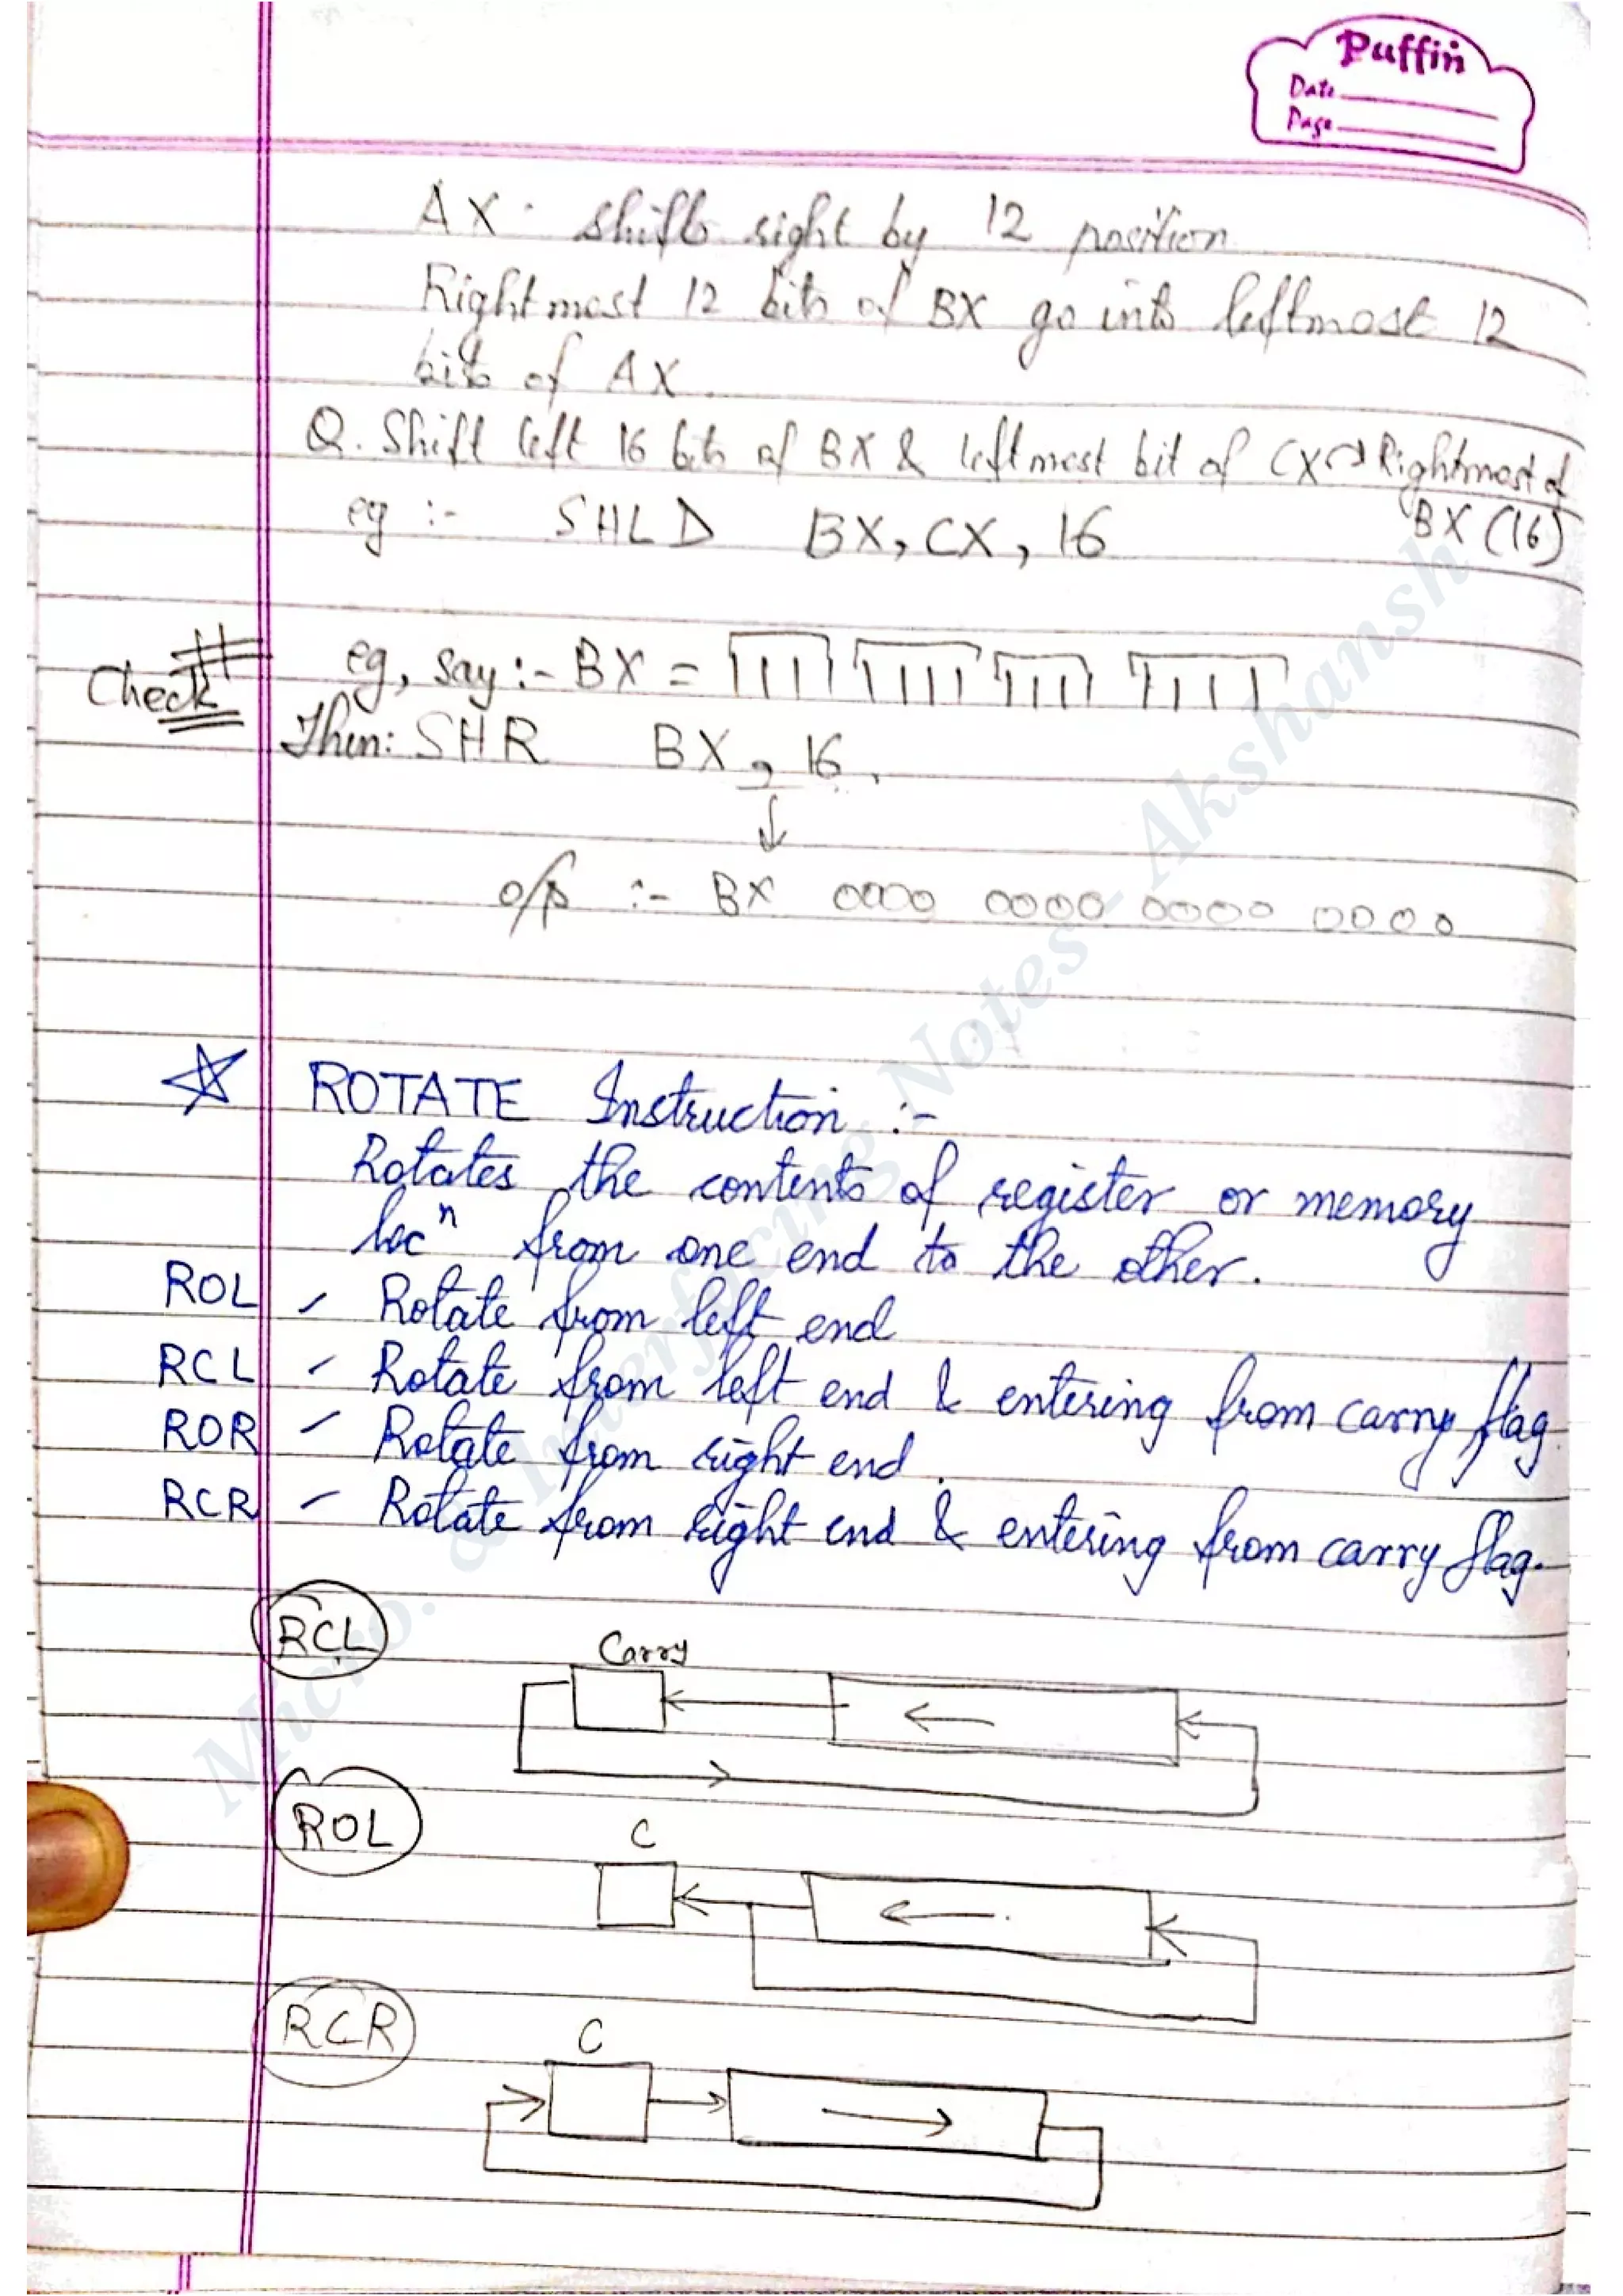 Puffin
Date
Page
AX : shifts right by 12 position
Rightmost 12 bits of BX go into leftmost 12
bits of AX.
Q. Shift left 16 bits of BX & leftmost bit of CX → Rightmost of
BX (16)
eg :- SHLD BX, CX, 16
#
Check
eg, say :- BX = 1111 1111 1111 1111
Then: SHR BX, 16.
↓
o/p :- BX 0000 0000 0000 0000
☆ ROTATE Instruction :-
Rotates the contents of register or memory
locⁿ from one end to the other.
ROL - Rotate from left end
RCL - Rotate from left end & entering from carry flag.
ROR - Rotate from right end.
RCR - Rotate from right end & entering from carry flag.
RCL
Carry
ROL
C
RCR
C
Micro. & Interfacing Notes - Akshansh